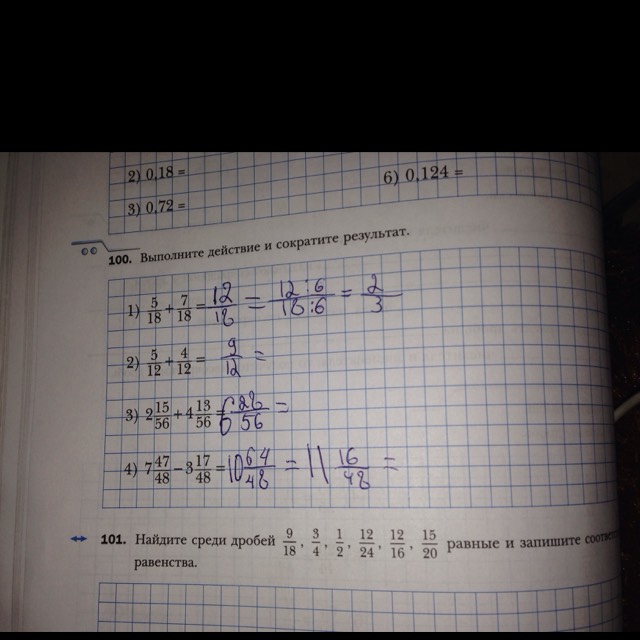 2) 0,18 =
6) 0,124 =
3) 0,72 =
100. Выполните действие и сократите результат.
1) 5/18 + 7/18 = 12/18 = 12:6/18:6 = 2/3
2) 5/12 + 4/12 = 9/12 =
3) 2 15/56 + 4 13/56 = 6 28/56 =
4) 7 47/48 − 3 17/48 = 10 64/48 = 11 16/48 =
101. Найдите среди дробей 9/18, 3/4, 1/2, 12/24, 12/16, 15/20 равные и запишите
равенства.